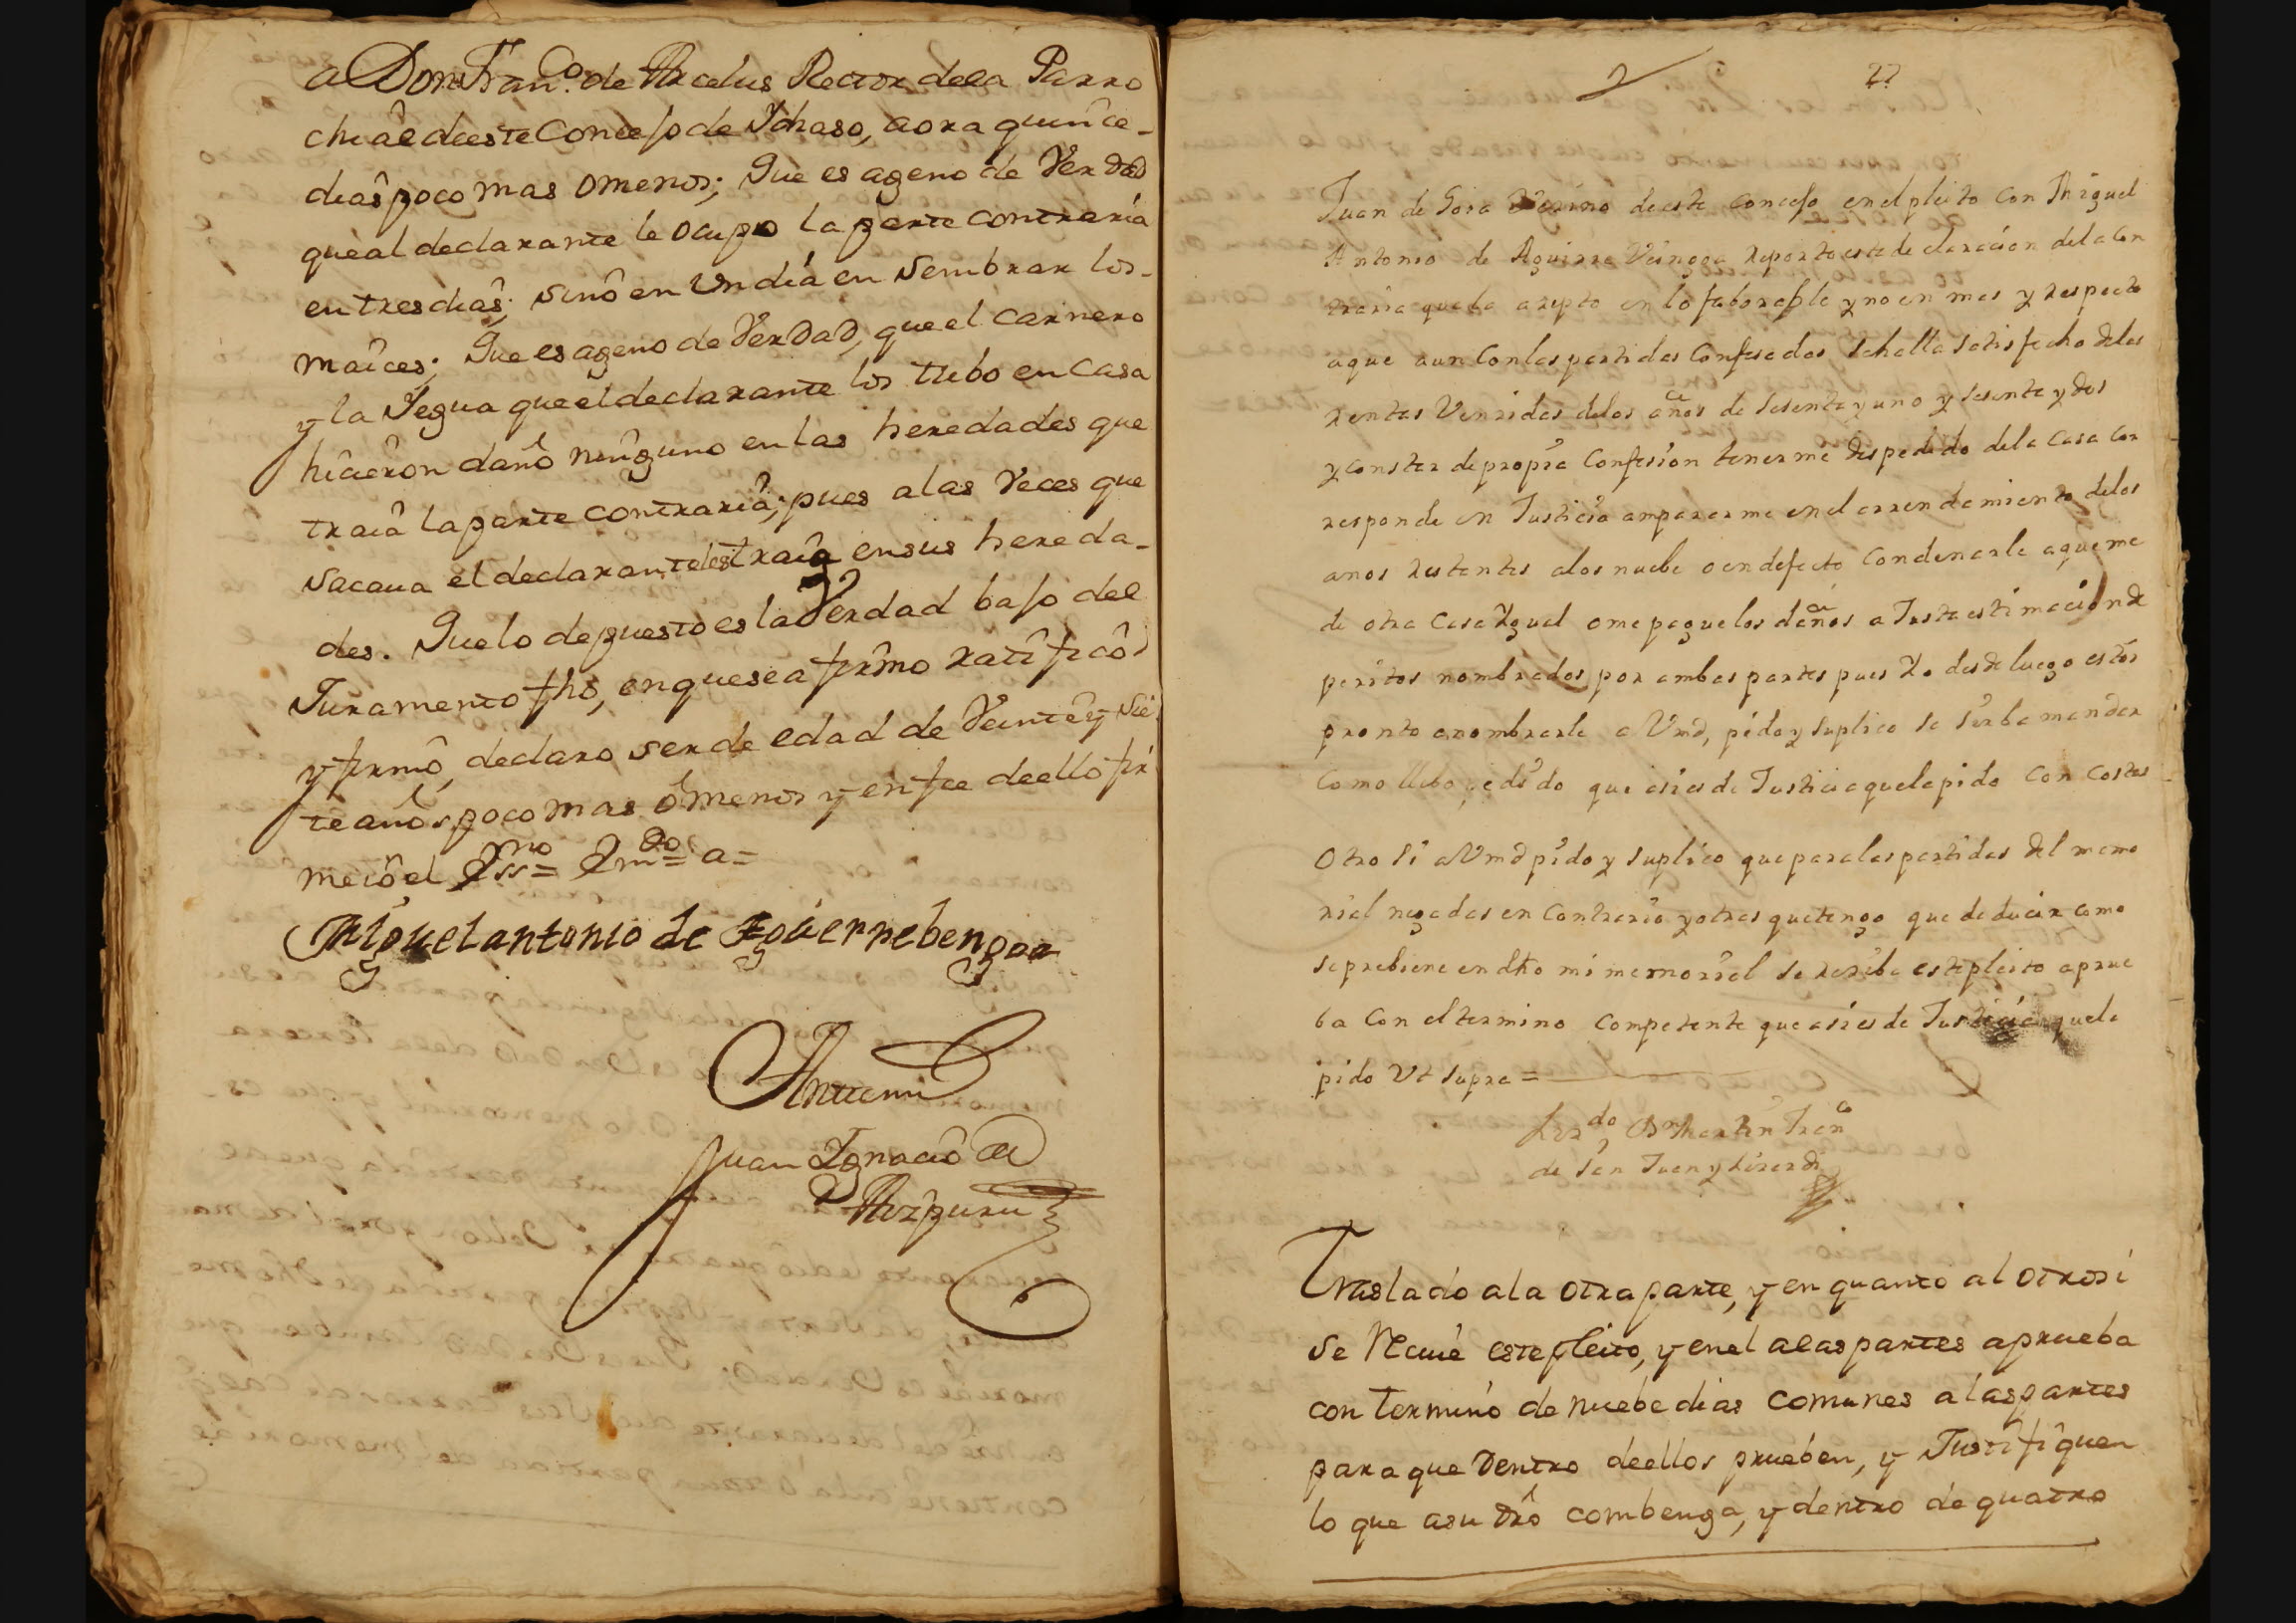 a Don Franco. de Arcelus Rector dela Parro
chiâl deeste Concejo de Ydiaso, aora quinĉe-
diaŝ poco mas o menos; Que es ageno de Verdad
que al declarante le ocupo la parte contraria
en tres diaŝ; sinô en Un dia en sembrar los-
maîces; Que es ageno de Verdad, que el carnero
y la Yegua que el declarante los tubo en casa
hiĉieron dañô ninguno en las heredades que
traiâ la parte contrariâ; pues a las Veces que
sacaua el declarante les traiâ en sus hereda-
des. Que lo depuesto es la Verdad bajo del
Juramento fho, en que se afirmo ratificô
y firmô, declaro ser de edad de Veinte y sie
te añoŝ poco mas ô menos y en fee deello fir
me iô el Essno= Emdo= a=
Miguel antonio de Eguierrebengoa
Antemi
Juan Ignacio de
Aizpuru
2 22
Juan de Goia Vecino de este Concejo en el pleito con Miguel
Antonio de Aguirre Veingoa reporto este declaracion dela Con
traria que la azepto en lo faborable y no en mas y respecto
aque aun con las partidas Confesadas se halla satisfecho delas
rentas Venzidas delos años de sesenta y uno y sesenta y dos
y constar de propia Confesion tenerme despedido dela Casa cor
responde en Justicia ampararme en el arrendamiento delos
años restantes alos nuebe o en defecto Condenarle a que me
de otra Casa Ygual o me pague los daños a Justa estimacion de
peritos nombrados por ambas partes pues Yo desde luego estoi
pronto a nombrarle a Vmd, pido y suplico se sirba mandar
Como llebo pedido que asi es de Justicia que la pido Con Costas
Otro si a Vmd pido y suplico que para las partidas del memo
rial negadas en Contrario y otras que tengo que deducir como
se prebiene en dho mi memorial se reciba este pleito a prue
ba Con el termino Competente que asi es de Justicia que la
pido Vt supra=
Lizdo Dn Martin Franco
de San Juan y Lizardi
Traslado ala otra parte, y en quanto al otrosi
se recive este pleito, y en el alas partes a prueba
con termino de nuebe dias comunes alas partes
para que dentro deellos prueben, y Justifiquen
lo que asu dro combenga, y dentro de quatro